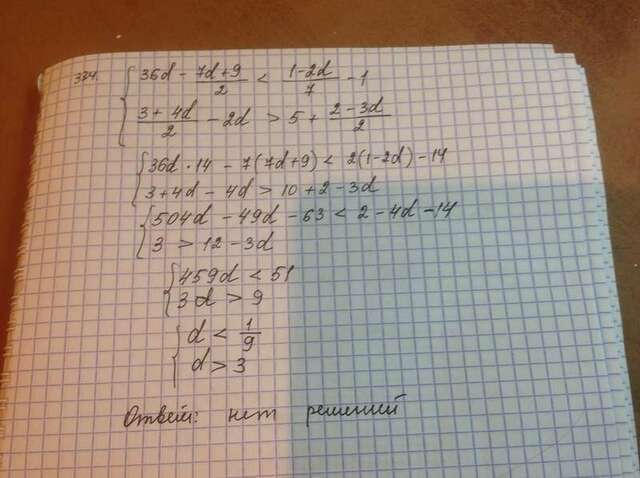 334. { 36d - (7d+9)/2 < (1-2d)/7 - 1
(3+4d)/2 - 2d > 5 + (2-3d)/2
{ 36d · 14 - 7(7d+9) < 2(1-2d) - 14
3+4d - 4d > 10 + 2 - 3d
{ 504d - 49d - 63 < 2 - 4d - 14
3 > 12 - 3d
{ 459d < 51
3d > 9
{ d < 1/9
d > 3
Ответ: нет решений